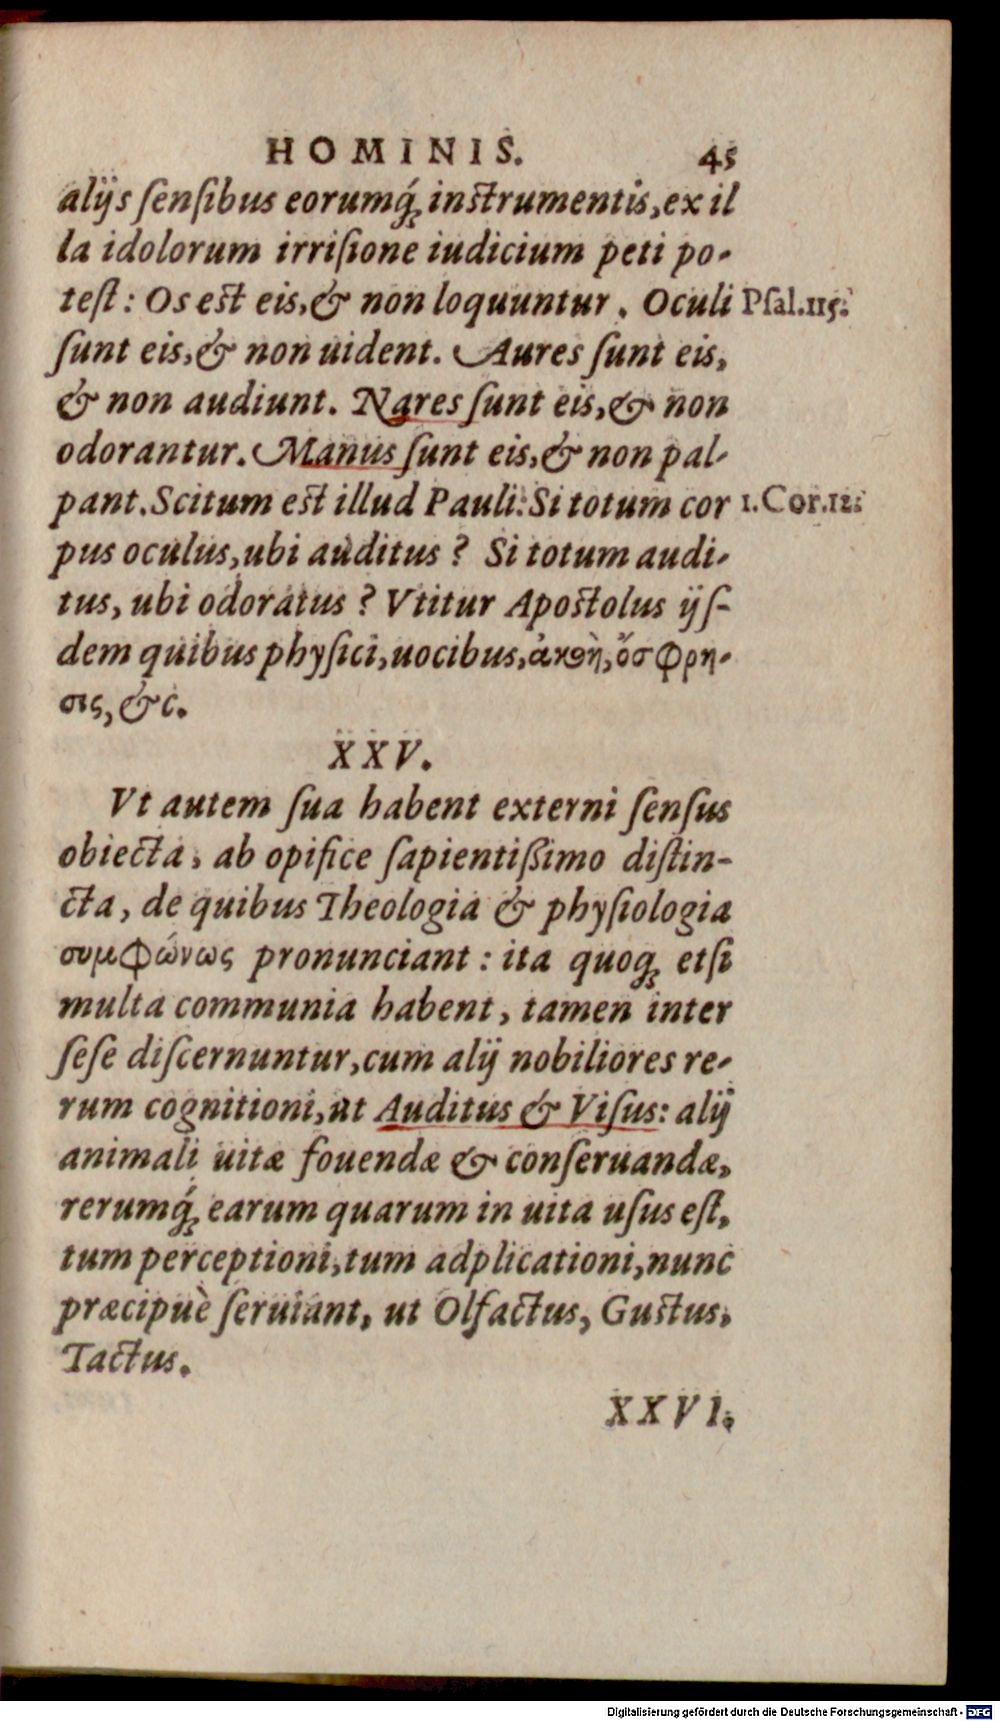 HOMINIS. 45
alijs ſenſibus eorumq́ꝫ inſtrumentis, ex il
la idolorum irriſione iudicium peti po-
teſt: Os eſt eis, & non loquuntur. Oculi Pſal.115.
ſunt eis, & non uident. Aures ſunt eis,
& non audiunt. Nares ſunt eis, & non
odorantur. Manus ſunt eis, & non pal-
pant. Scitum eſt illud Pauli: Si totum cor 1. Cor. 12.
pus oculus, ubi auditus? Si totum audi-
tus, ubi odoratus? Vtitur Apoſtolus ijſ-
dem quibus phyſici, uocibus, ἀκοὴ, ὄσφρη-
σις, &c.
XXV.
Vt autem ſua habent externi ſenſus
obiecta, ab opifice ſapientißimo diſtin-
cta, de quibus Theologia & phyſiologia
συμφώνως pronunciant: ita quoqꝫ etſi
multa communia habent, tamen inter
ſeſe diſcernuntur, cum alij nobiliores re-
rum cognitioni, ut Auditus & Viſus: alij
animali uitæ fouendæ & conſeruandæ,
rerumq́ꝫ earum quarum in uita uſus eſt,
tum perceptioni, tum adplicationi, nunc
præcipuè ſeruiant, ut Olfactus, Guſtus,
Tactus.
XXVI.
Digitalisierung gefördert durch die Deutsche Forschungsgemeinschaft - DFG